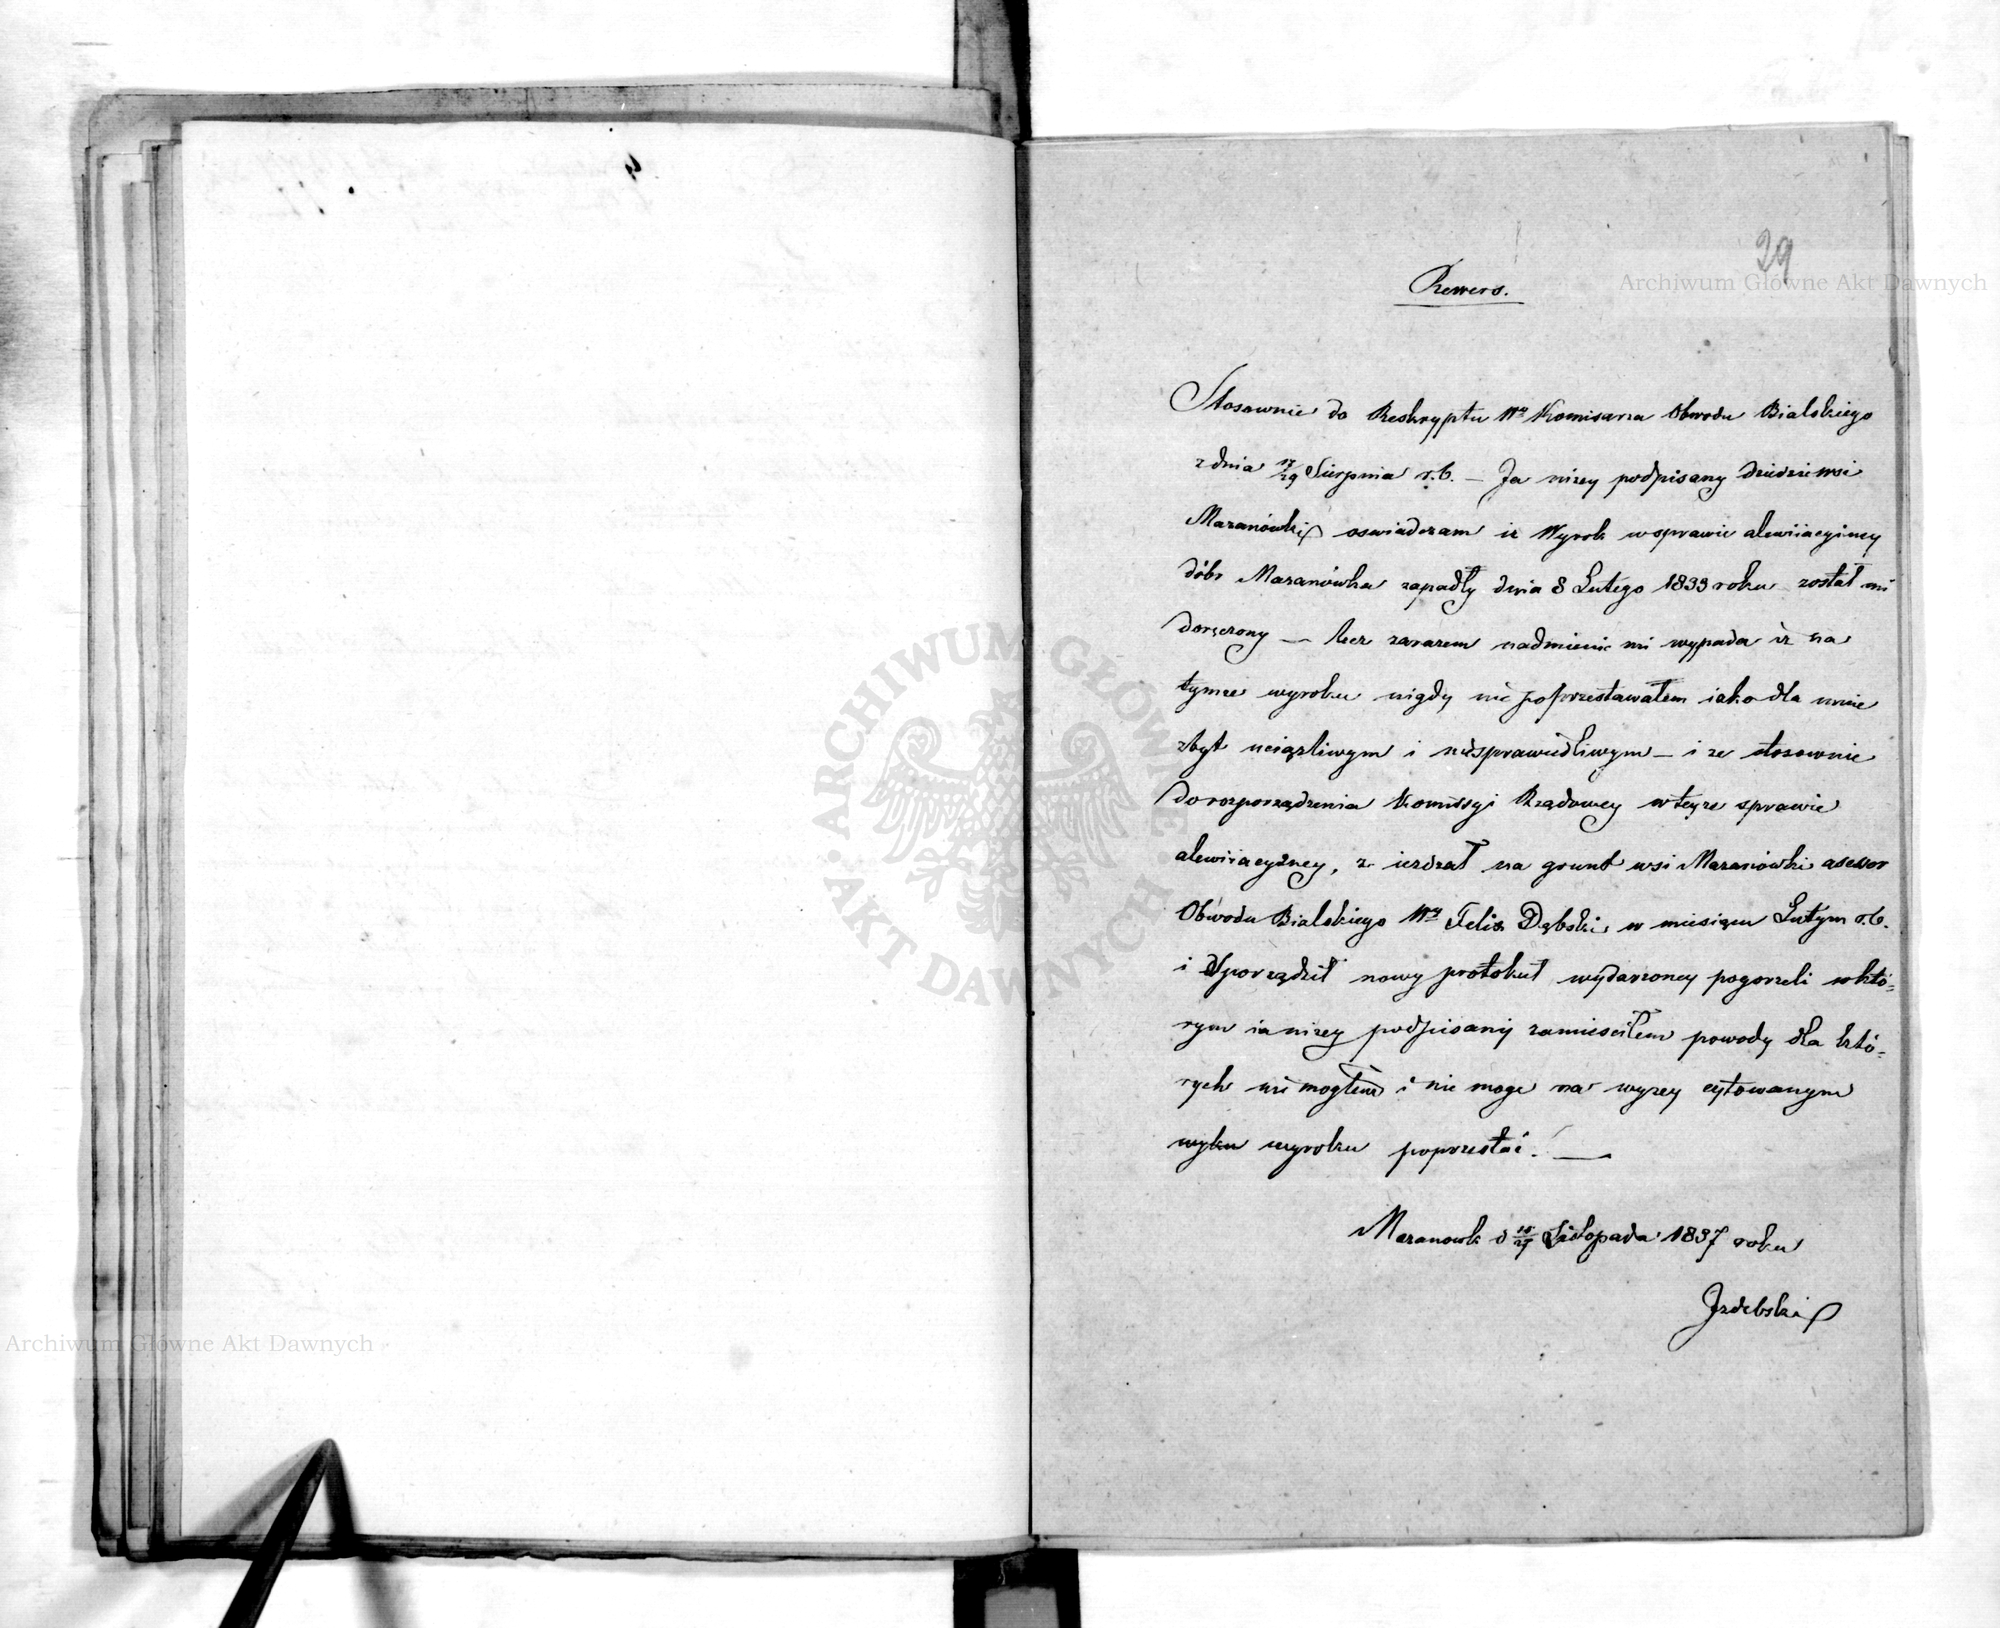 29
Rewers.
Stosownie do Reskryptu Wo Komisarza Obwodu Bialskiego
z dnia 17/29 Sierpnia r.b. — Ja nizey podpisany dziedzic wsi
Mazanówki oswiadczam iz Wyrok w sprawie alewiiacyiney
dóbr Mazanówka zapadły dnia 8 Lutego 1833 roku został mi
doręczony — lecz zarazem nadmienic mi wypada iz na
tymze wyroku nigdy nie poprzestawałem iako dla mnie
zbyt uciązliwym i niesprawiedliwym — i ze stosownie
do rozporządzenia Kommissyi Rządowey w teyze sprawie
alewiiacyiney, z iezdzał na grunt wsi Mazanówki asessor
Obwodu Bialskiego Wy Felix Dąbski w miesiącu Lutym r.b.
i sporządził nowy protokuł wydarzoney pogorzeli w któ=
rym ia nizey podpisany zamiesciłem powody dla któ=
rych nie mogłem i nie moge na wyzey cytowanym
wyroku poprzestać. —
Mazanowk d 15/27 Listopada 1837 roku
Izdebski
Archiwum Główne Akt Dawnych
Archiwum Główne Akt Dawnych
ARCHIWUM GŁÓWNE AKT DAWNYCH